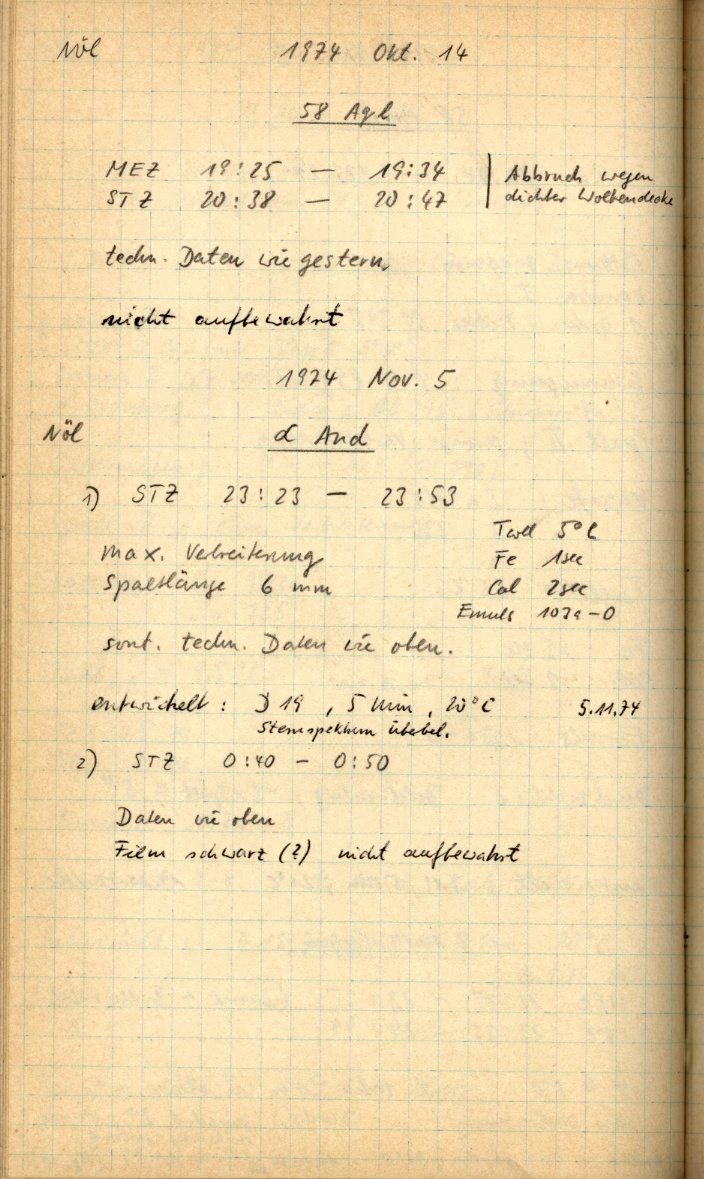 Nöl 1974 Okt. 14
58 Aql
MEZ 19:25 — 19:34 | Abbruch wegen
STZ 20:38 — 20:47 | dichter Wolkendecke
techn. Daten wie gestern,
nicht aufbewahrt
1974 Nov. 5
Nöl α And
1) STZ 23:23 — 23:53
5°C
max. Verbreiterung Fe 1sec
Spaltlänge 6 mm Cal 2sec
Emuls 103a-O
sonst. techn. Daten wie oben.
entwickelt: D 19, 5 min, 20°C 5.11.74
Sternspektrum überbel.
2) STZ 0:40 — 0:50
Daten wie oben
Film schwarz (?) nicht aufbewahrt